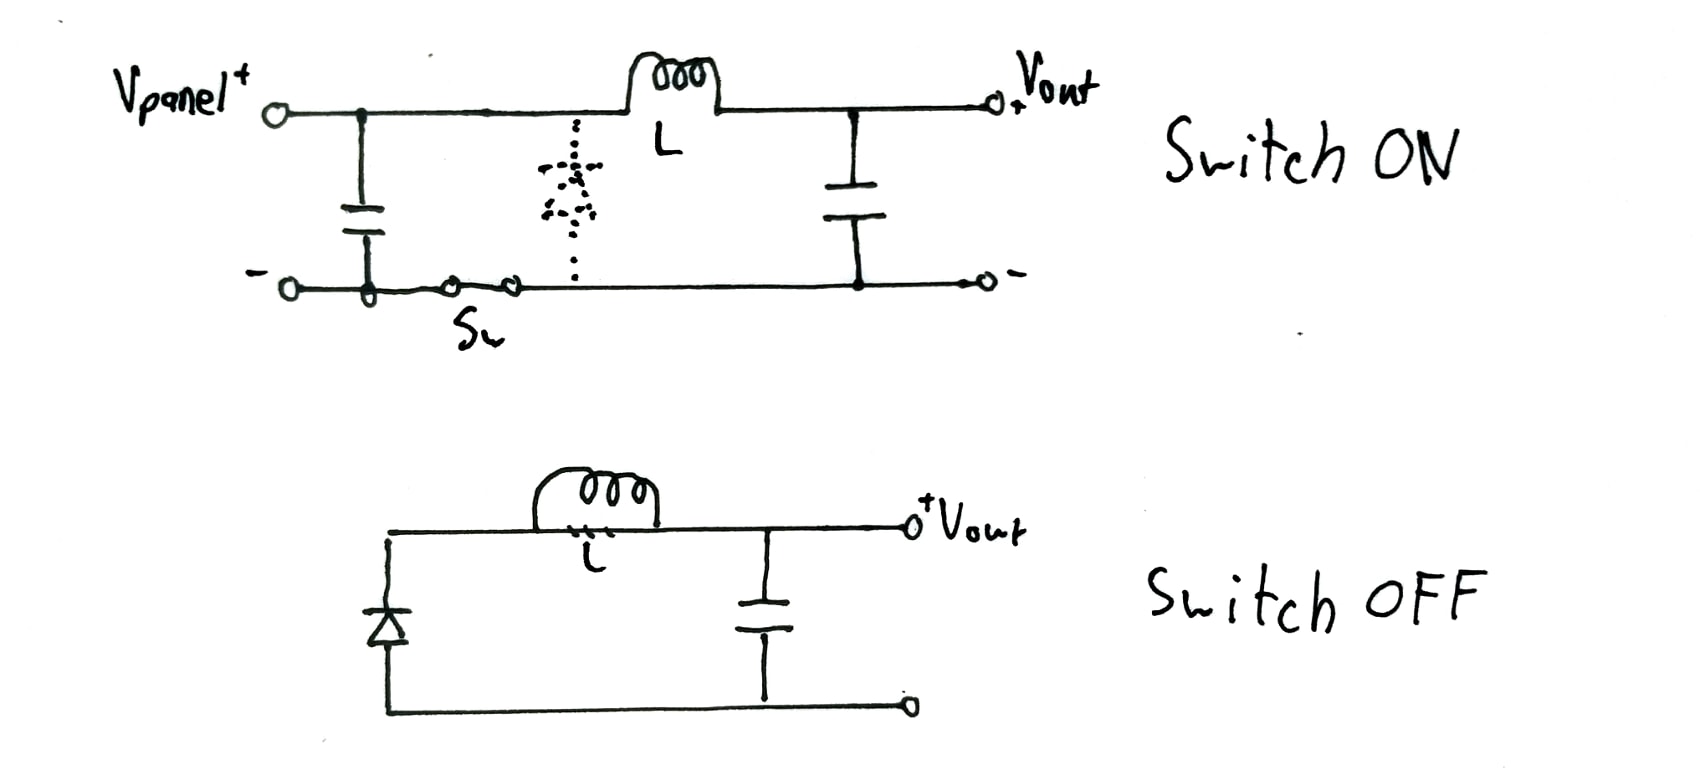 Vpanel +
+ Vout
L
Switch ON
-
-
Sw
+ Vout
L
Switch OFF